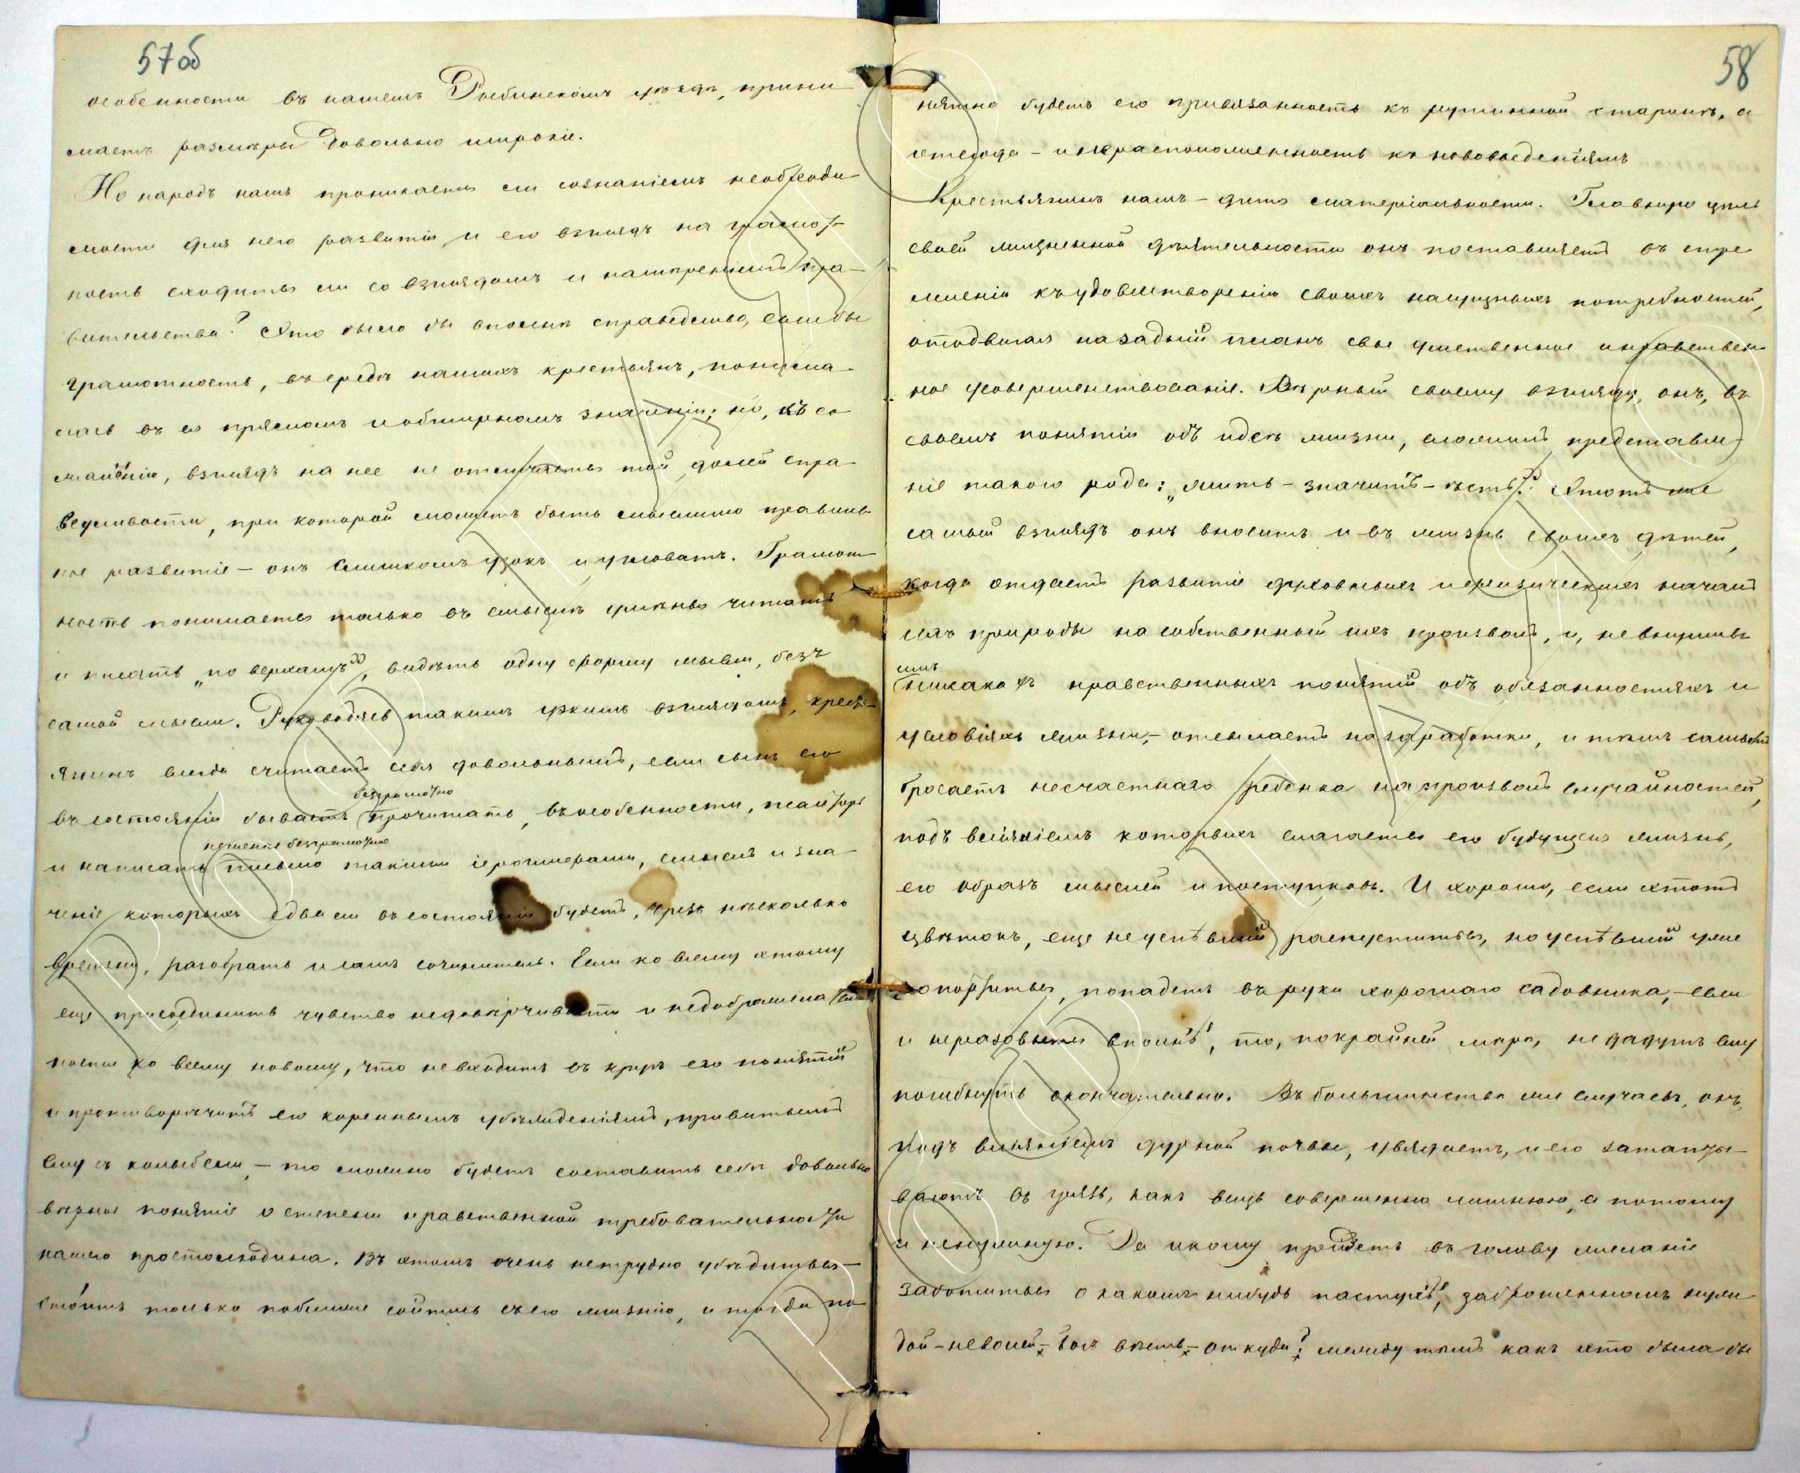 57 об
особенности въ нашемъ Рыбинскомъ уѣздѣ, прини
маетъ размѣры довольно широкіе.
Но народъ нашъ проникается ли сознаніемъ необходи
мости для него развитія, и его взглядъ на грамот
ность сходится ли со взглядомъ и намѣреніемъ пра-
вительства? Это было бы вполнѣ справедливо, еслибы
грамотность, въ средѣ нашихъ крестьянъ, понима-
лась въ ея прямомъ и обширномъ значеніи; но, къ со
жалѣнію, взглядъ на нее не отличается той долей спра
ведливости, при которой можетъ быть мыслимо правиль
ное развитіе – онъ слишкомъ узокъ и угловатъ. Грамот
ность понимается только въ смыслѣ умѣнья читать
и писать „по верхамъ“, видѣть одну форму мысли, безъ
самой мысли. Руководясь такимъ узкимъ взглядомъ, кресть-
янинъ всегда считаетъ себя довольнымъ, если сынъ его
безграмотно
въ состояніи бываетъ прочитать, въ особенности, псалтырь
нешенно безграмотное
и написать письмо такими іероглифами, смыслъ и зна-
ченіе которыхъ едва ли въ состояніи будетъ, чрезъ нѣсколько
времени, разобрать и самъ сочинитель. Если ко всему этому
еще присоединить чувство недовѣрчивости и недоброжелатель
ности ко всему новому, что не входитъ въ кругъ его понятій
и противорѣчитъ его кореннымъ убѣжденіямъ, привитымъ
ему съ колыбели, – то можно будетъ составить себѣ довольно
вѣрное понятіе о степени нравственной требовательности
нашего простолюдина. Въ этомъ очень нетрудно убѣдиться –
стоитъ только поближе сойтись съ его жизнію, и тогда по
58
нятно будетъ его привязанность къ рутинной старинѣ, а
отсюда – и нерасположенность къ нововведеніямъ
Крестьянинъ нашъ – дитя матеріальности. Главную цѣль
своей жизненной дѣятельности онъ поставляетъ въ стре
мленіи къ удовлетворенію своихъ насущныхъ потребностей,
отодвигая на задній планъ свое умственное и нравствен
ное усовершенствованіе. Вѣрный своему взгляду, онъ, въ
своемъ понятіи объ идеѣ жизни, сложилъ представле
ніе такого рода: „жить – значитъ – ѣсть“. Этотъ же
самый взглядъ онъ вноситъ и въ жизнь своихъ дѣтей,
когда отдаетъ развитіе духовныхъ и физическихъ начал
ихъ природы на собственный ихъ произволъ, и, не внушивъ
имъ
никакихъ нравственныхъ понятій объ обязанностяхъ и
условіяхъ жизни, – отсылаетъ на заработки, и тѣмъ самымъ
бросаетъ несчастнаго ребенка на произволъ случайностей,
подъ вліяніемъ которыхъ слагается его будущая жизнь,
его образъ мыслей и поступковъ. И хорошо, если этотъ
цвѣтокъ, еще неуспѣвшій распуститься, но успѣвшій уже
попортиться, попадетъ въ руки хорошаго садовника, – если
и неразовьется вполнѣ, то, покрайней мѣрѣ, не дадутъ ему
погибнуть окончательно. Въ большинствѣ же случаевъ, онъ,
подъ вліяніемъ дурной почвы, увядаетъ, и его затапты-
ваютъ въ грязь, какъ вещь совершенно лишнюю, а потому
и ненужную. Да и кому придетъ въ голову желаніе
заботиться о какомъ нибудь пастухѣ, заброшенномъ нуж
дой – неволей – Богъ вѣсть – откуда? между тѣмъ какъ это была бы